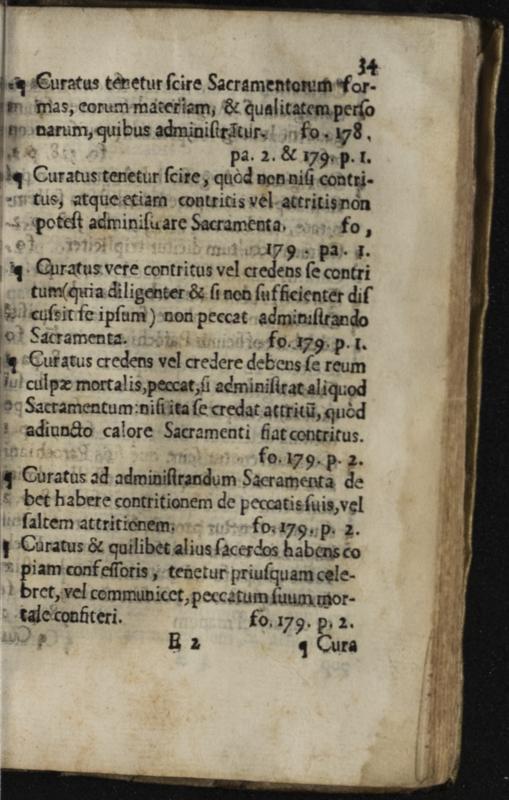 34
¶ Curatus tenetur scire Sacramentorum for-
mas, eorum materiam, & qualitatem perso
narum, quibus administrātur. fo. 178.
pa. 2. & 179. p. 1.
¶ Curatus tenetur scire, quòd non nisi contri-
tus, atque etiam contritis vel attritis non
potest administrare Sacramenta. fo,
179. pa. 1.
¶ Curatus vere contritus vel credens se contri
tum (quia diligenter & si non sufficienter dis
cussit se ipsum) non peccat administrando
Sacramenta. fo. 179. p. 1.
¶ Curatus credens vel credere debens se reum
culpæ mortalis, peccat, si administrat aliquod
Sacramentum: nisi ita se credat attritū, quòd
adiuncto calore Sacramenti fiat contritus.
fo. 179. p. 2.
¶ Curatus ad administrandum Sacramenta de
bet habere contritionem de peccatis suis, vel
saltem attritionem. fo. 179. p. 2.
¶ Curatus & quilibet alius sacerdos habens co
piam confessoris, tenetur priusquam cele-
bret, vel communicet, peccatum suum mor-
tale confiteri. fo. 179. p. 2.
E 2 ¶ Cura